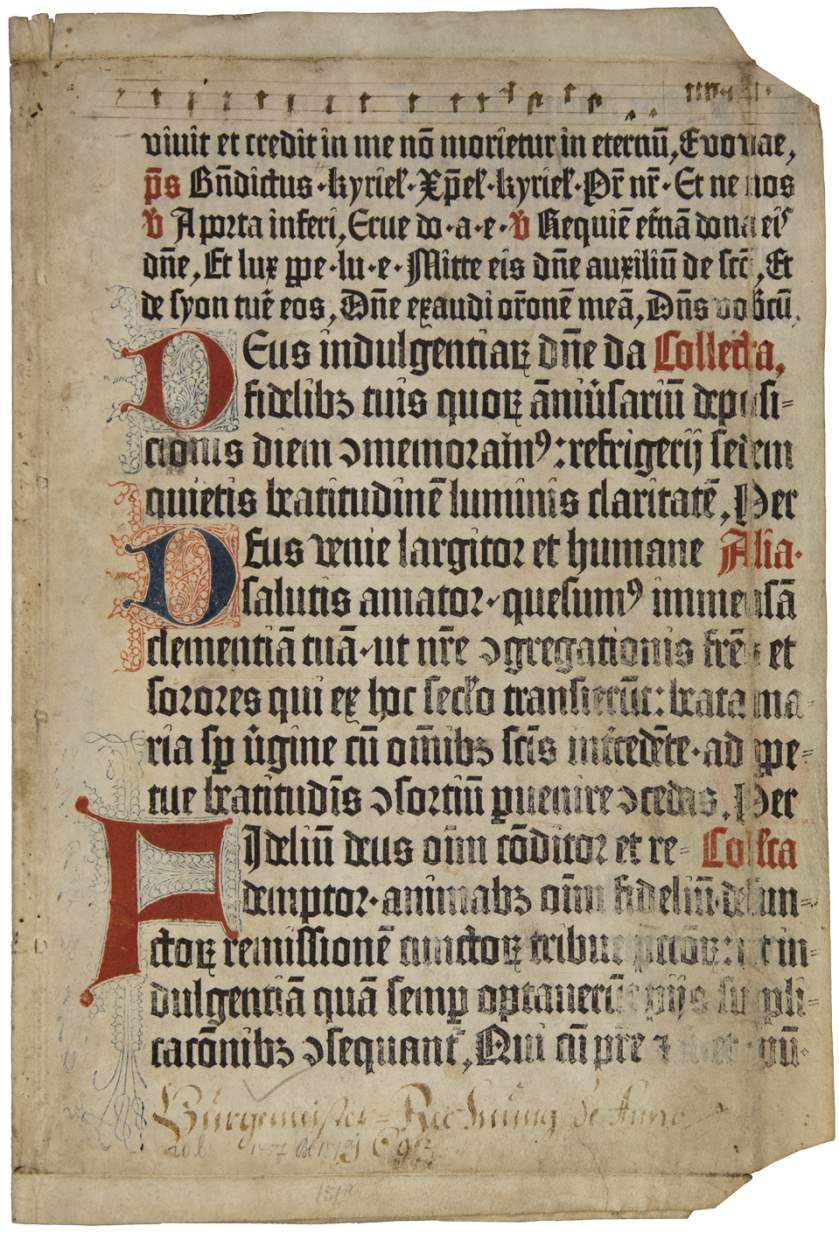 viuit et credit in me nō morietur in eternū, Euouae,
p̄s Bn̄dictus · kyriel̛ · Xp̄el̛ · kyriel̛ · Pr̄ nr̄ · Et ne nos
v̄ A porta inferi, Erue do · a · e · v̄ Requiē et̄nā dona eis
dn̄e, Et lux ꝑpe · lu · e · Mitte eis dn̄e auxiliū de sc̄t, Et
de syon tue᷑ eos, Dn̄e exaudi or̄onē meā, Dn̄s vobīcū,
DEus indulgentiaꝝ dn̄e da Collecta,
fidelibꝫ tuis quoꝝ āniu͛sariū deposi-
cionis diem ↄmemoram᷒ : refrigerij sedem
quietis beatitudinē luminis claritatē, Per
DEus venie largitor et humane Alia ·
salutis amator · quesum᷒ immensā
clementiā tuā · ut nr̄e ↄgregationis frē et
sorores qui ex hoc sec̄lo transierūt : beata ma
ria sꝑ u͛gine cū om̄ibꝫ sc̄is int͛cedēte · ad ꝑpe-
tue beatitudīs ↄsortiū ꝑuenire ↄcedas, Per
FJdeliū deus oīm cōditor et re- Coll̄cta
demptor · animabꝫ oīm fideliū defun-
ctoꝝ remissionē cunctoꝝ tribue in-
dulgentiā quā semꝑ optauerūt pijs suppli-
cacōnibꝫ ↄsequant᷑, Qui cū p̄re
Bürgemeister-Rechnung de Anno
1519